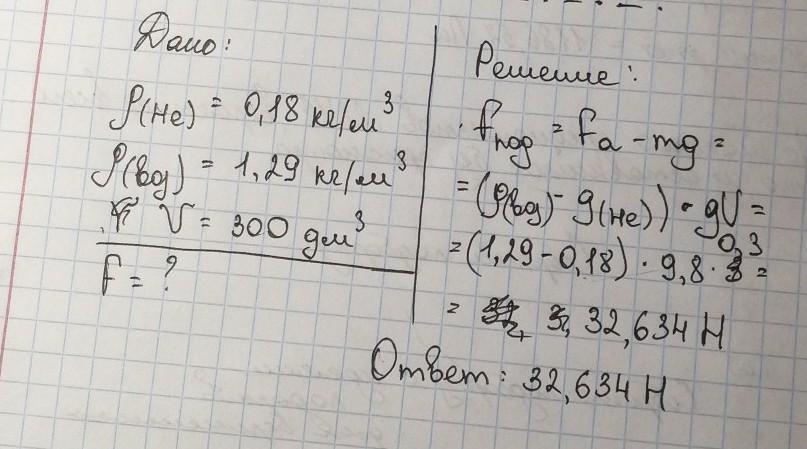 Дано:
ρ(He) = 0,18 кг/м³
ρ(вд) = 1,29 кг/м³
V = 300 дм³
F = ?
Решение:
Fпод = Fa - mg =
= (ρ(вд) - ρ(He)) · gV =
= (1,29 - 0,18) · 9,8 · 0,3 =
= 32,634 Н
Ответ: 32,634 Н